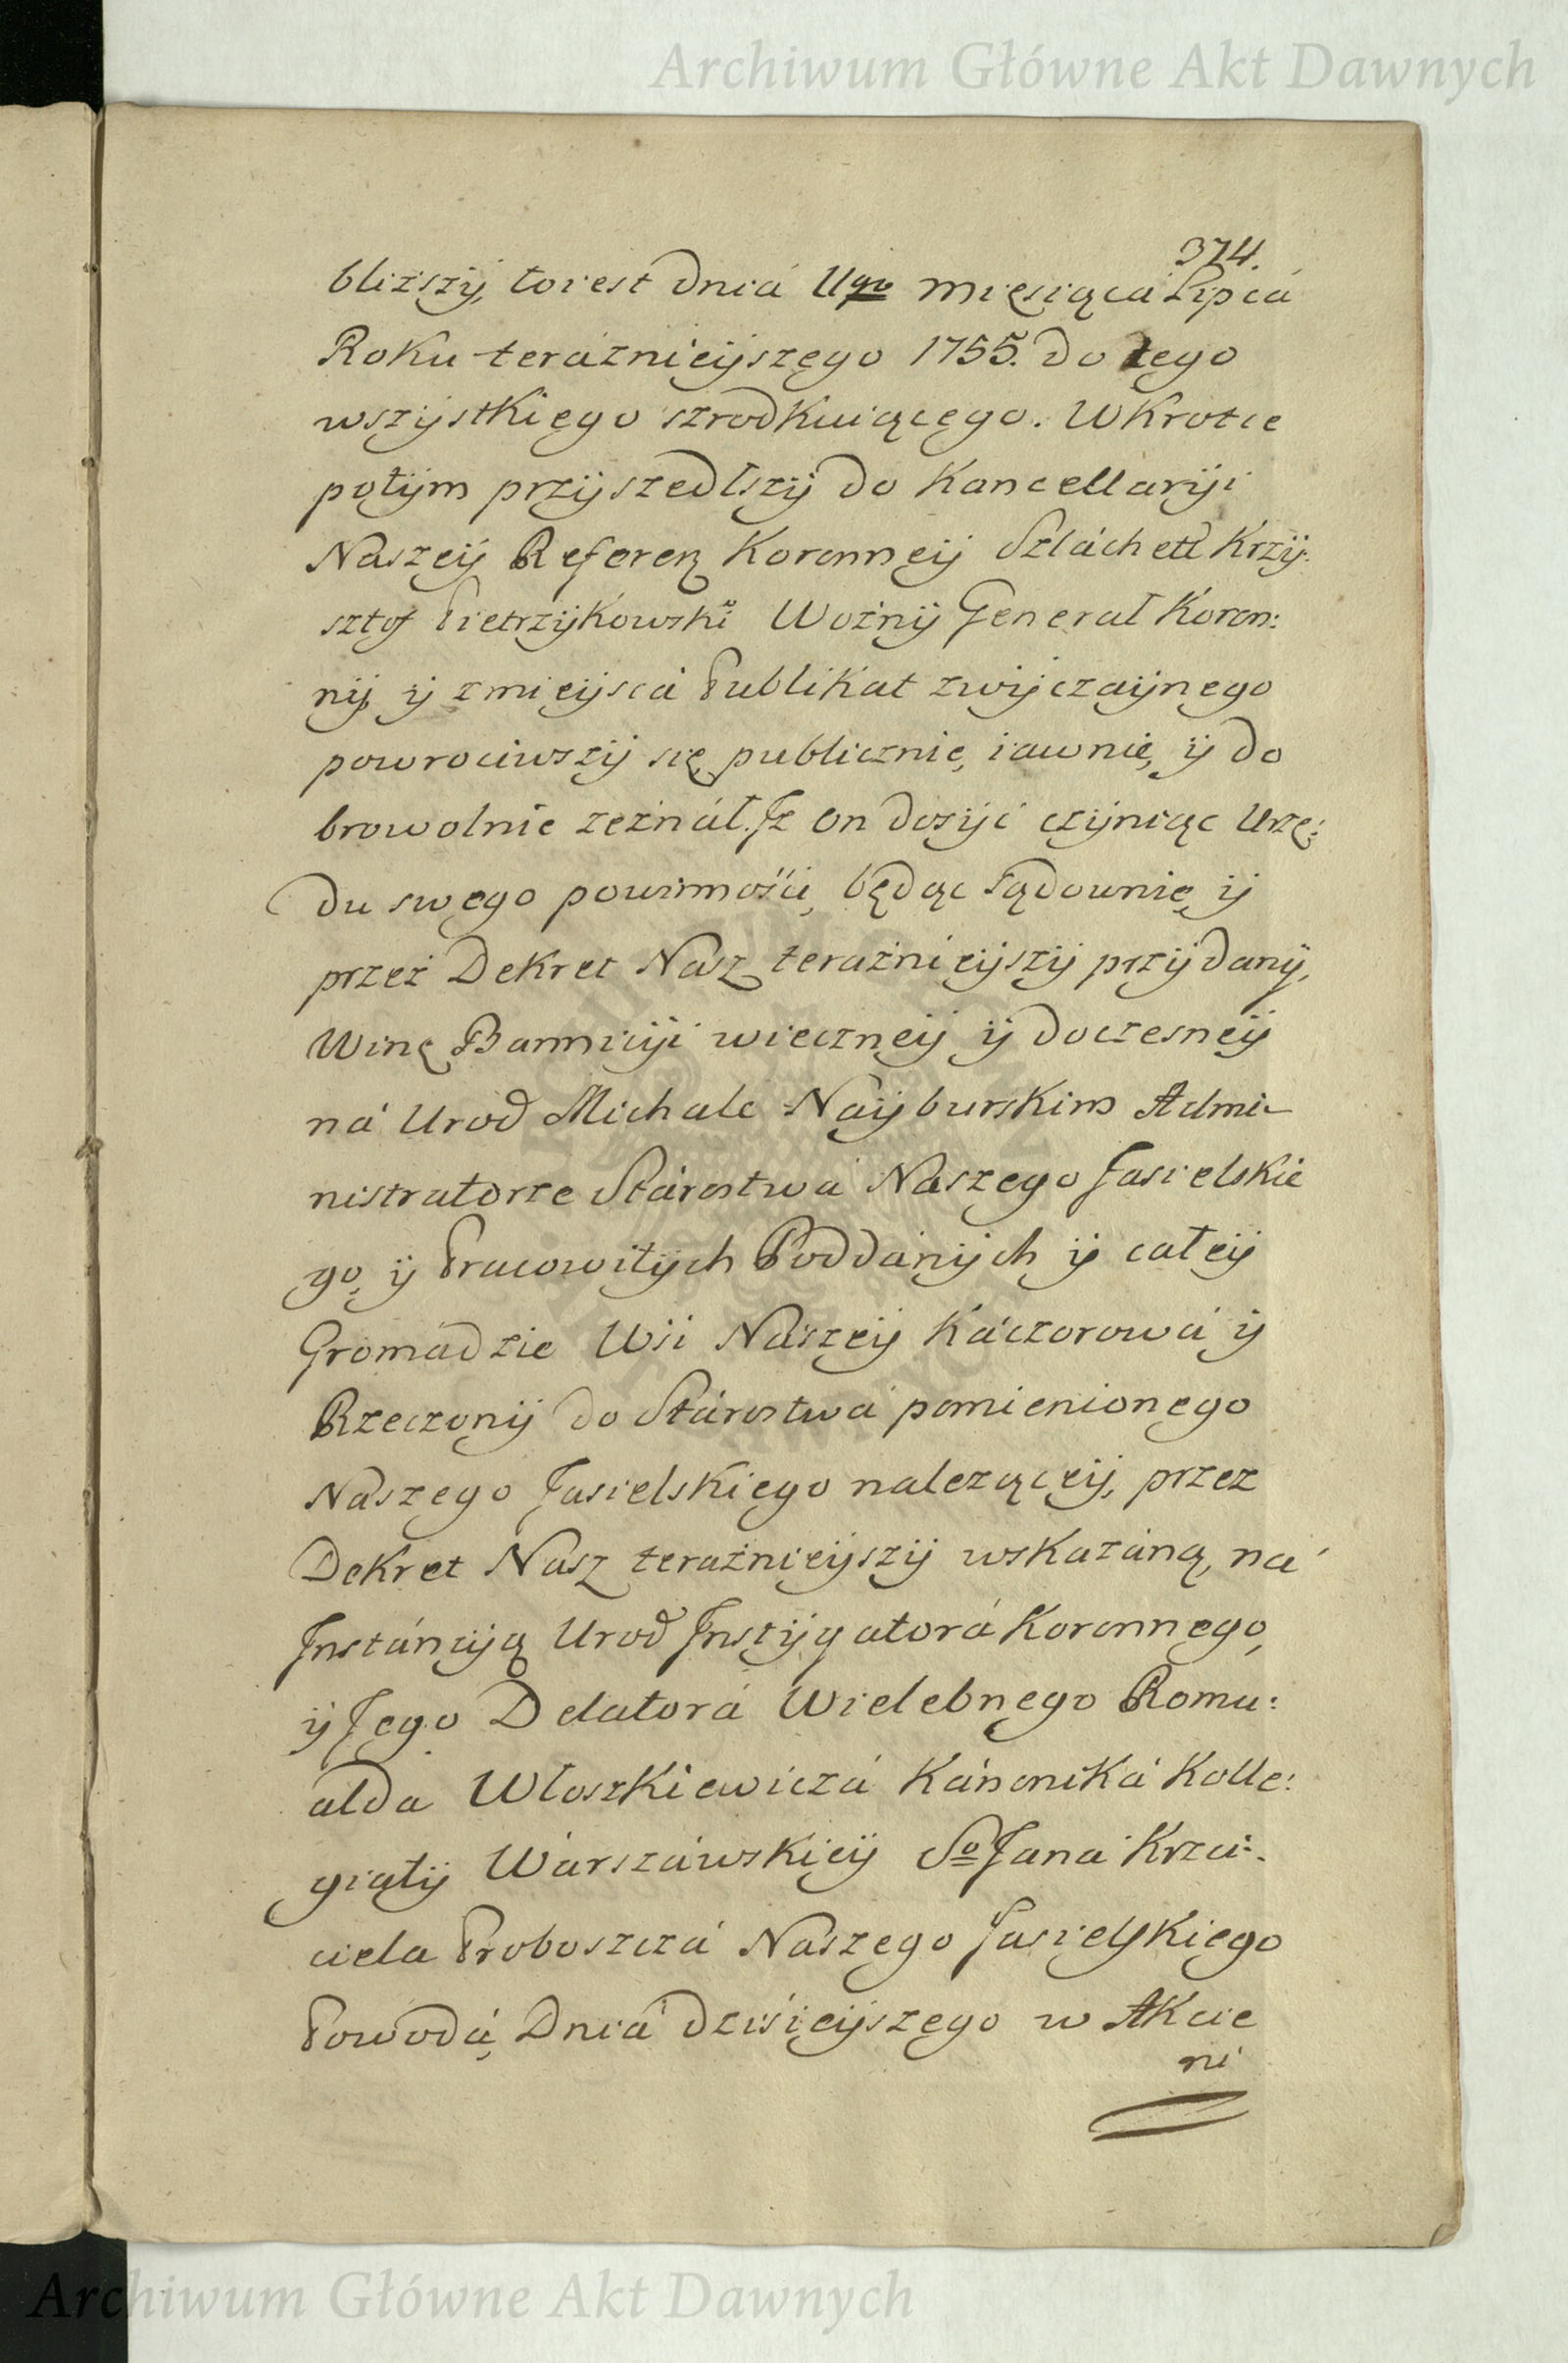 Archiwum Główne Akt Dawnych
374.
blizszÿ, toiest Dniá 11go Miesiącá Lipcá
Roku teráznieÿszęgo 1755. do tego
wszÿstkięgo szrodkuiącęgo. Wkrotce
potÿm przÿszedłszÿ do Kancellarÿi
Naszęÿ Referen Koronnęÿ Szláchett Krzÿ:
sztof Pietrzÿkowski Woźnÿ Generał Koron:
nÿ, ÿ zmieÿscá Publikat zwÿczaÿnego
powrociwszÿ się, publicznie, iawnie, ÿ do
browolnie zeznáł. Jz on dosÿć czÿniąc Urzę:
du swęgo powinności, będąc sądownie, ÿ
przez Dekret Nász teraźnieÿszÿ przÿdanÿ,
Winę Bannicÿi wiecznęÿ ÿ doczesnęÿ
ná Urod Michale Naÿburskim Admi-
nistratorze Stárostwá Naszego Jasielskie
go, ÿ Pracowitÿch Poddánÿch ÿ całeÿ
Gromadzie Wsi Nászęÿ Káczorowá ÿ
Rzeczonÿ do Stárostwá pomienionęgo
Nászęgo Jasielskięgo należącęÿ, przez
Dekret Nasz teraźnieÿszÿ wskázáną, ná
Jnstáncÿą Urod Jnstÿgatorá Koronnęgo,
ÿ Jęgo Delatorá Wielebnęgo Romu:
alda Włoszkiewiczá Kánoniká Kolle:
giatÿ Wárszáwskięÿ So Jana Krzci:
ciela Proboszczá Naszęgo Jasielskięgo
Powodá, Dniá dzisięÿszęgo w Akcie
ni
Archiwum Główne Akt Dawnych